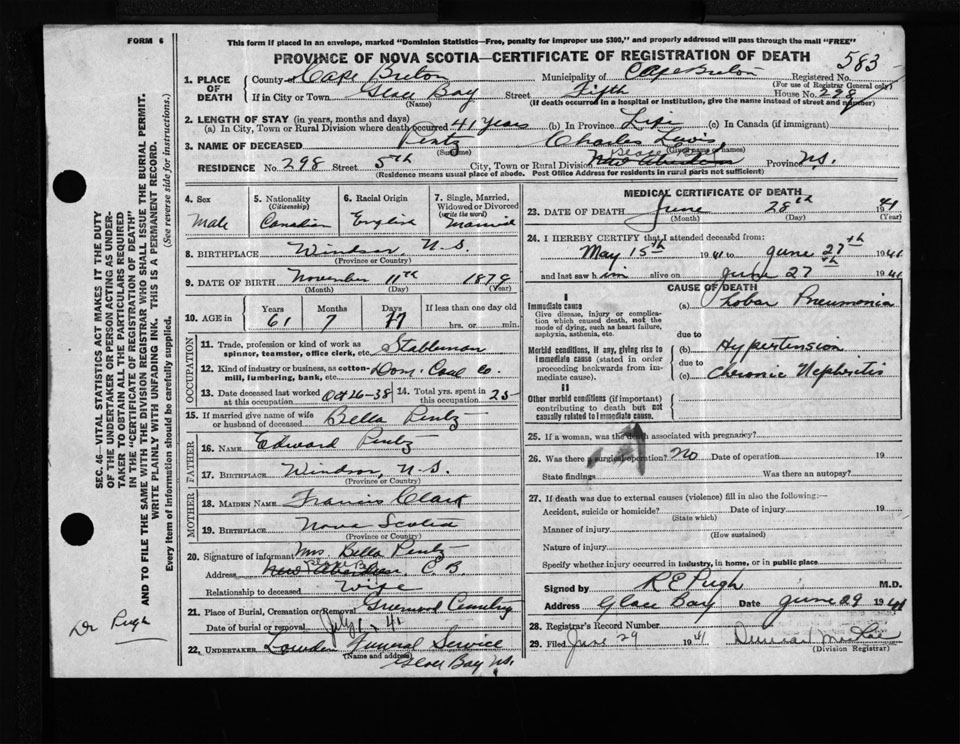 FORM 6
This form if placed in an envelope, marked "Dominion Statistics—Free, penalty for improper use $300," and properly addressed will pass through the mail "FREE"
PROVINCE OF NOVA SCOTIA—CERTIFICATE OF REGISTRATION OF DEATH
583
1. PLACE OF DEATH
County of Cape Breton Municipality of Cape Breton Registered No.
(For use of Registrar General only)
If in City or Town Glace Bay Street Fifth House No. 298
(Name) (If death occurred in a hospital or institution, give the name instead of street and number)
2. LENGTH OF STAY (in years, months and days)
(a) In City, Town or Rural Division where death occurred 41 years (b) In Province Life (c) In Canada (if immigrant)
3. NAME OF DECEASED Pentz Charles Lewis
(Surname) (Given name or names)
RESIDENCE No. 298 Street 5th City, Town or Rural Division New Aberdeen Province N.S.
(Residence means usual place of abode. Post Office Address for residents in rural parts not sufficient)
4. Sex Male
5. Nationality (Citizenship) Canadian
6. Racial Origin English
7. Single, Married, Widowed or Divorced (write the word) Married
8. BIRTHPLACE Windsor, N.S.
(Province or Country)
9. DATE OF BIRTH November 11th 1879
(Month) (Day) (Year)
10. AGE in Years 61 Months 7 Days 17 If less than one day hrs. or min.
OCCUPATION
11. Trade, profession or kind of work as spinner, teamster, office clerk, etc. Stableman
12. Kind of industry or business, as cotton-mill, lumbering, bank, etc. Dom. Coal Co.
13. Date deceased last worked at this occupation Oct 26-38 14. Total yrs. spent in this occupation 25
15. If married give name of wife or husband of deceased Bella Pentz
FATHER
16. NAME Edward Pentz
17. BIRTHPLACE Windsor, N.S.
(Province or Country)
MOTHER
18. MAIDEN NAME Francis Clark
19. BIRTHPLACE Nova Scotia
(Province or Country)
20. Signature of informant Mrs Bella Pentz
Address New Aberdeen, C.B.
Relationship to deceased Wife
21. Place of Burial, Cremation or Removal Greenwood Cemetery
Date of burial or removal July 1, 41
22. UNDERTAKER Lowden Funeral Service
(Name and address)
Glace Bay N.S.
MEDICAL CERTIFICATE OF DEATH
23. DATE OF DEATH June 28th 1941
(Month) (Day) (Year)
24. I HEREBY CERTIFY that I attended deceased from:
May 15th 1941 to June 27th 1941
and last saw him alive on June 27th 1941
CAUSE OF DEATH
I
Immediate cause (a) Lobar Pneumonia
Give disease, injury or complication which caused death, not the mode of dying, such as heart failure, asphyxia, asthenia, etc.
due to
Morbid conditions, if any, giving rise to immediate cause (stated in order proceeding backwards from immediate cause).
(b) Hypertension
due to
(c) Chronic Nephritis
II
Other morbid conditions (if important) contributing to death but not causally related to immediate cause.
25. If a woman, was the death associated with pregnancy?
26. Was there a surgical operation? No Date of operation 19
State findings Was there an autopsy?
27. If death was due to external causes (violence) fill in also the following:—
Accident, suicide or homicide? Date of injury 19
(State which)
Manner of injury
(How sustained)
Nature of injury
Specify whether injury occurred in industry, in home, or in public place
Signed by R E Pugh M.D.
Address Glace Bay Date June 29 1941
28. Registrar's Record Number
29. Filed June 29 1941
(Division Registrar)
SEC. 46—VITAL STATISTICS ACT MAKES IT THE DUTY
OF THE UNDERTAKER OR PERSON ACTING AS UNDER-
TAKER TO OBTAIN ALL THE PARTICULARS REQUIRED
IN THE "CERTIFICATE OF REGISTRATION OF DEATH"
AND TO FILE THE SAME WITH THE DIVISION REGISTRAR WHO SHALL ISSUE THE BURIAL PERMIT.
WRITE PLAINLY WITH UNFADING INK. THIS IS A PERMANENT RECORD.
Every item of information should be carefully supplied. (See reverse side for instructions.)
Dr Pugh